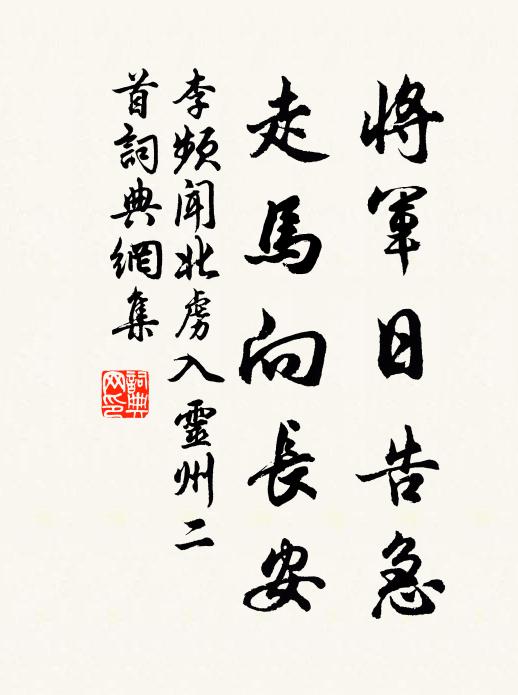 將軍日告急
走馬向長安
李頻聞北虜入靈州二
首詞典網集
詞典
网印